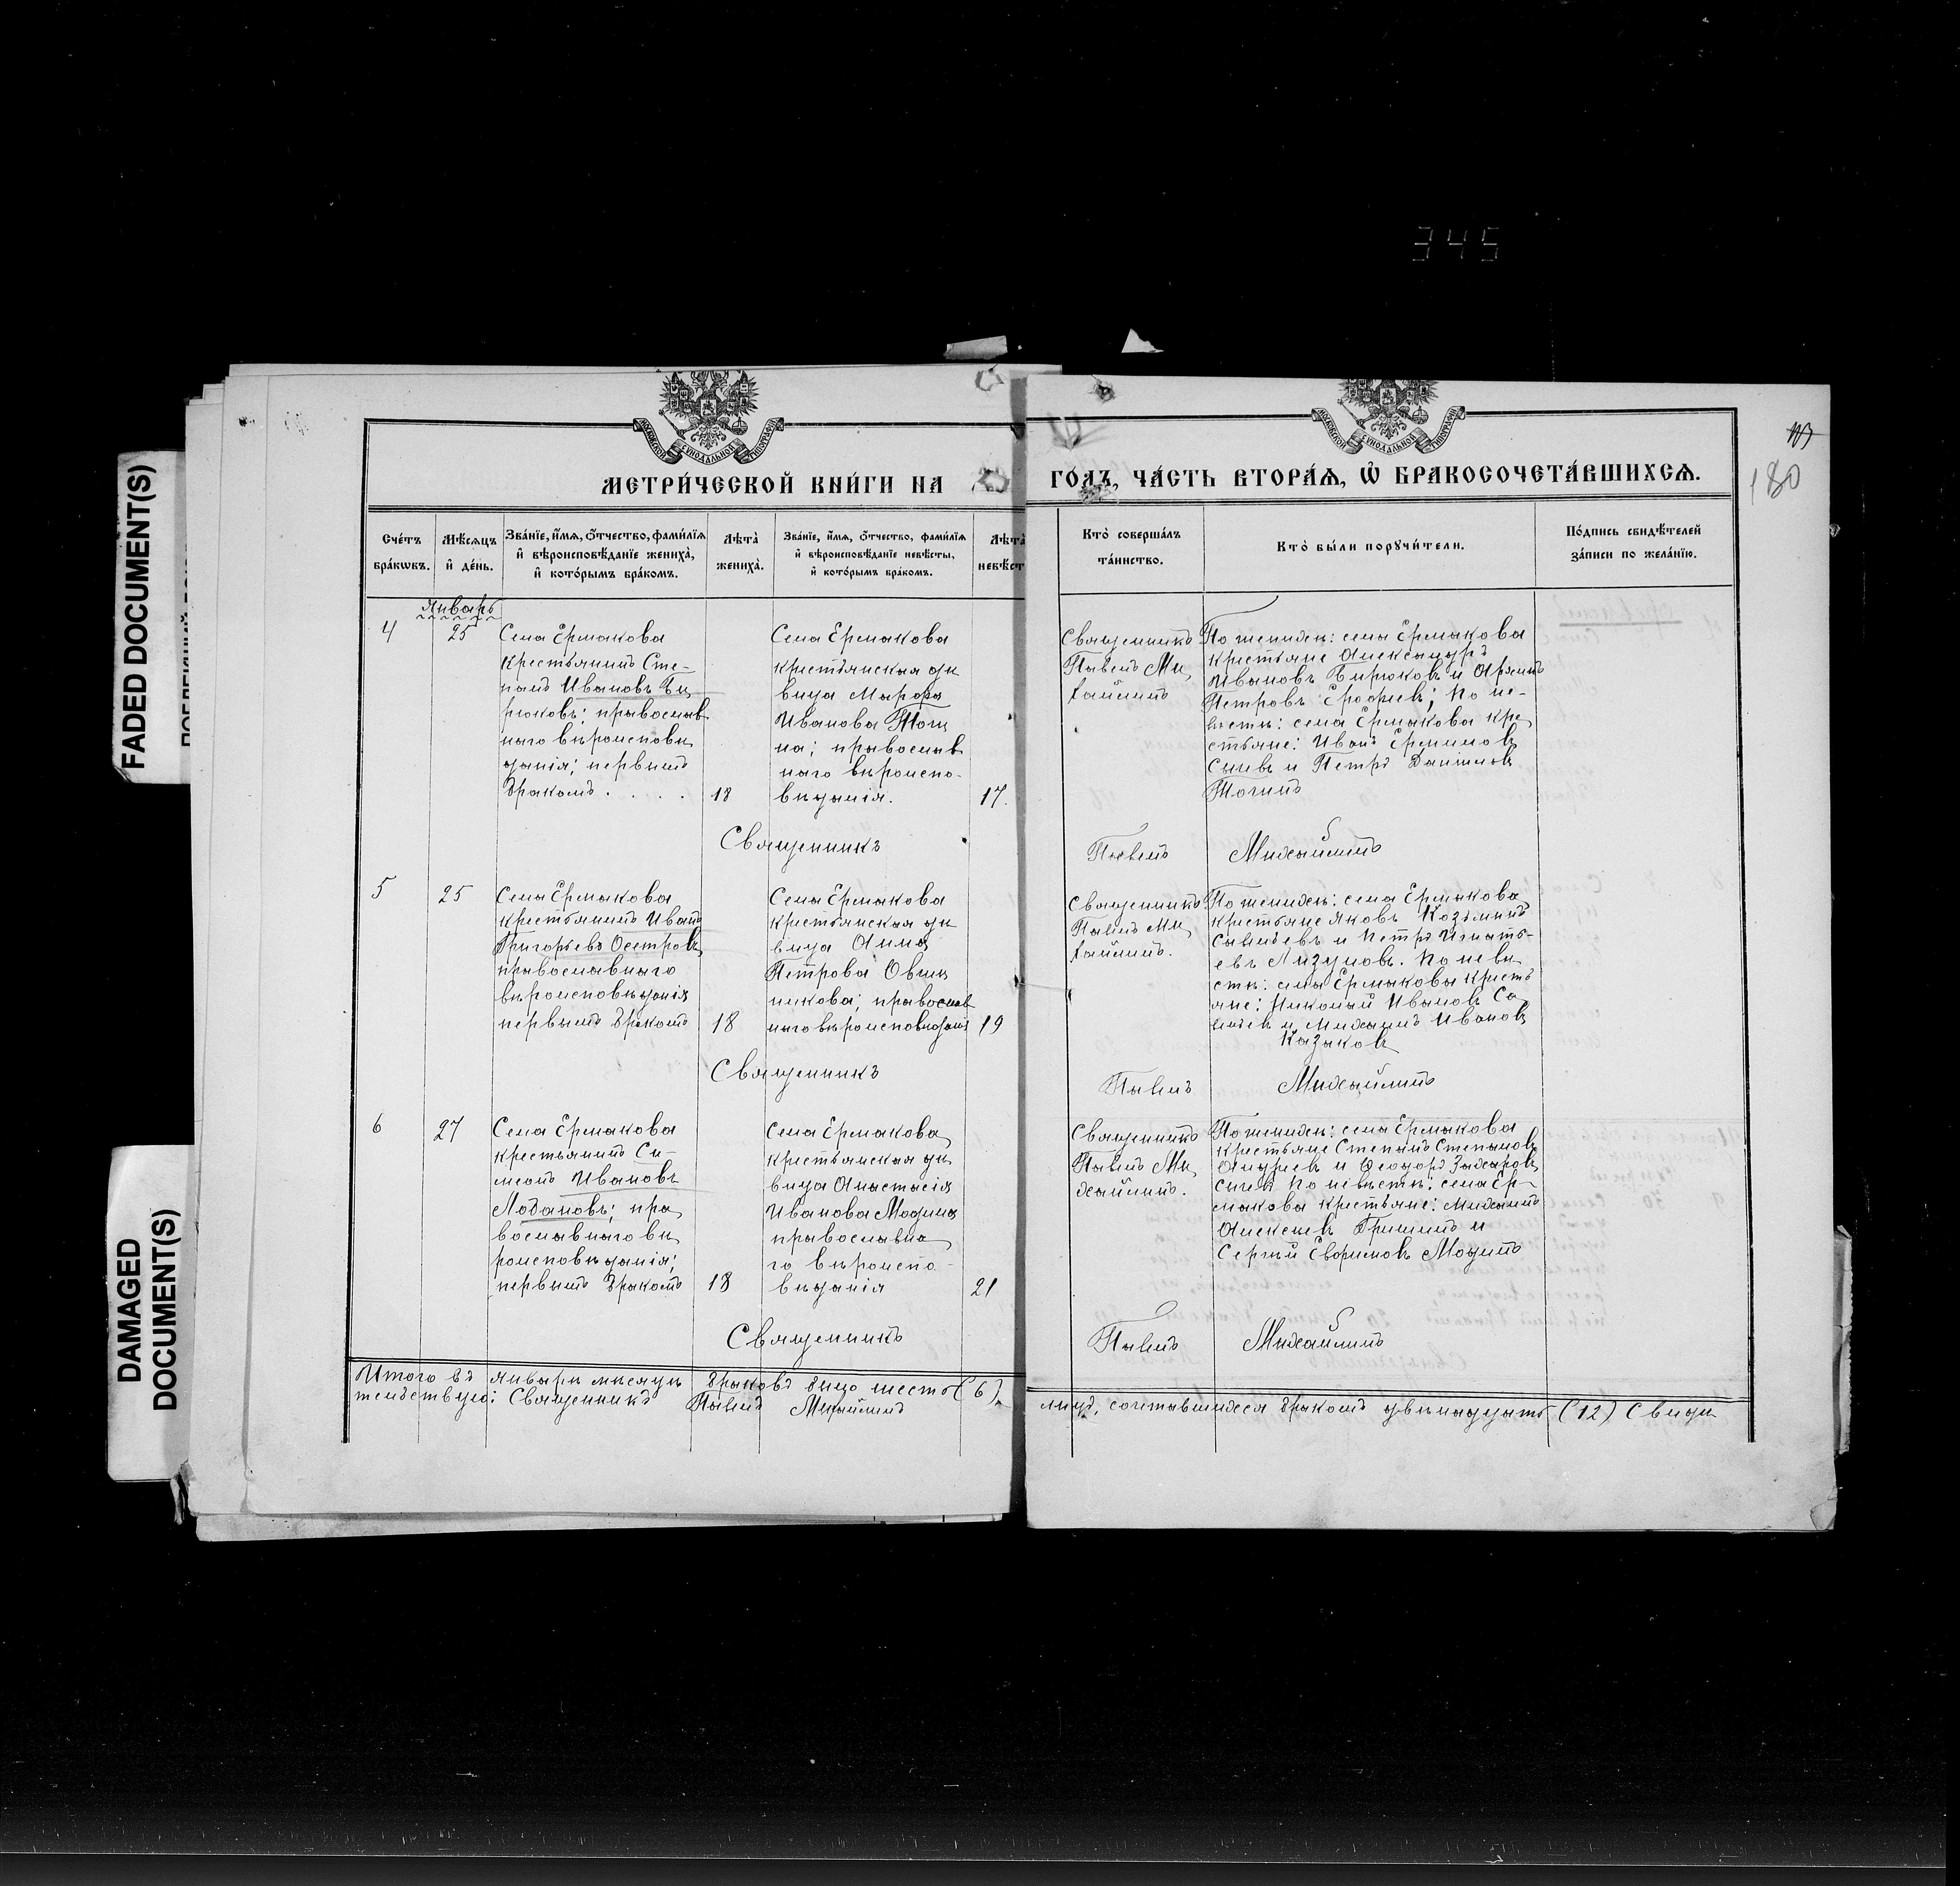 345
FADED DOCUMENT(S)
DAMAGED
DOCUMENT(S)
МОСКОВСКОЙ СѴНОДАЛЬНОЙ ТИПОГРАФІИ
МЕТРИ́ЧЕСКОЙ КНИ́ГИ НА
ГО́ДЪ, ЧА́СТЬ ВТОРА́Ѧ, Ѽ БРАКОСОЧЕТА́ВШИХСѦ.
180
Сче́тъ бра́кѡвъ.
Мѣ́сяцъ и҆ де́нь.
Зва́нїе, и҆́мѧ, ѻ҆́тчество, фами́лїѧ и҆ вѣроисповѣ́данїе жениха̀, и҆ кото́рымъ бра́комъ.
Лѣта̀ жениха̀.
Зва́нїе, и҆́мѧ, ѻ҆́тчество, фами́лїѧ и҆ вѣроисповѣ́данїе невѣ́сты, и҆ кото́рымъ бра́комъ.
Лѣта̀ невѣ́ст
Кто̀ соверша́лъ та́инство.
Кто̀ бы́ли порꙋчи́тели.
По́дпись свидѣ́телей за́писи по жела́нїю.
Январь
4
25
Села Ермакова
крестьянинъ Сте-
панъ Ивановъ Би
рюковъ; православ
наго вѣроисповѣ
данія; первымъ
бракомъ . . . .
18
Села Ермакова
крестьянская дѣ
вица Марѳа
Иванова
на; православ
наго вѣроиспо-
вѣданія.
17.
Священникъ
Павелъ Ми
хайлинъ
По женихѣ: села Ермакова
крестьяне Александръ
Ивановъ Бирюковъ и
Петровъ Ерофѣевъ; по не-
вѣстѣ: села Ермакова кре
стьяне: Иванъ
и Петръ Даниловъ
Священникъ Павелъ Михайлинъ
5
25
Села Ермакова
крестьянинъ Иванъ
Григорьевъ Осетровъ
православнаго
вѣроисповѣданія
первымъ бракомъ
18
Села Ермакова
крестьянская дѣ
вица Анна
Петрова Овчин
никова; православ
наго вѣроисповѣданія
19
Священникъ
Павелъ Ми
хайлинъ.
По женихѣ: села Ермакова
крестьяне Яковъ Козьминъ
Савельевъ и Петръ Игнать-
евъ Лизуновъ. По невѣ
стѣ: села Ермакова кресть
яне: Николай Ивановъ
и Михаилъ Ивановъ
Казаковъ
Священникъ Павелъ Михайлинъ
6
27
Села Ермакова
крестьянинъ Си-
меонъ Ивановъ
Лобановъ; пра
вославнаго вѣ
роисповѣданія;
первымъ бракомъ
18
Села Ермакова
крестьянская дѣ
вица Анастасія
Иванова Модина
православна
го вѣроиспо-
вѣданія
21
Священникъ
Павелъ Ми
хайлинъ.
По женихѣ: села Ермакова
крестьяне Степанъ Степановъ
Андреевъ и Ѳеодоръ Захаровъ
по невѣстѣ: села Ер-
макова крестьяне: Михаилъ
Алексѣевъ Гришинъ и
Сергѣй Евфимовъ Модинъ
Священникъ Павелъ Михайлинъ
Итого въ январѣ мѣсяцѣ браковъ было шесть (6),
лицъ, сочетавшихся бракомъ двѣнадцать (12) Свидѣ
тельствую: Священникъ Павелъ Михайлинъ